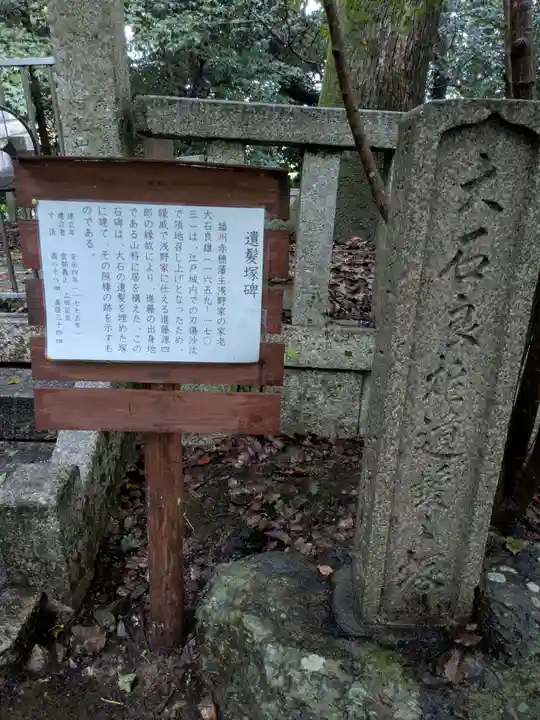 遺髪塚碑
播州赤穂藩主浅野家の家老
大石良雄(一六五九~一七〇
三)は、江戸城内での刃傷沙汰
で領地召し上げとなったため、
縁戚で浅野家に仕える進藤源四
郎の縁故により、進藤の出身地
である山科に居を構えた。この
石碑は、大石の遺髪を埋めた塚
に建て、その隠棲の跡を示すも
のである。
建立年 安永四年(一七七五年)
建立者
寸法
大石良雄遺髪之塚